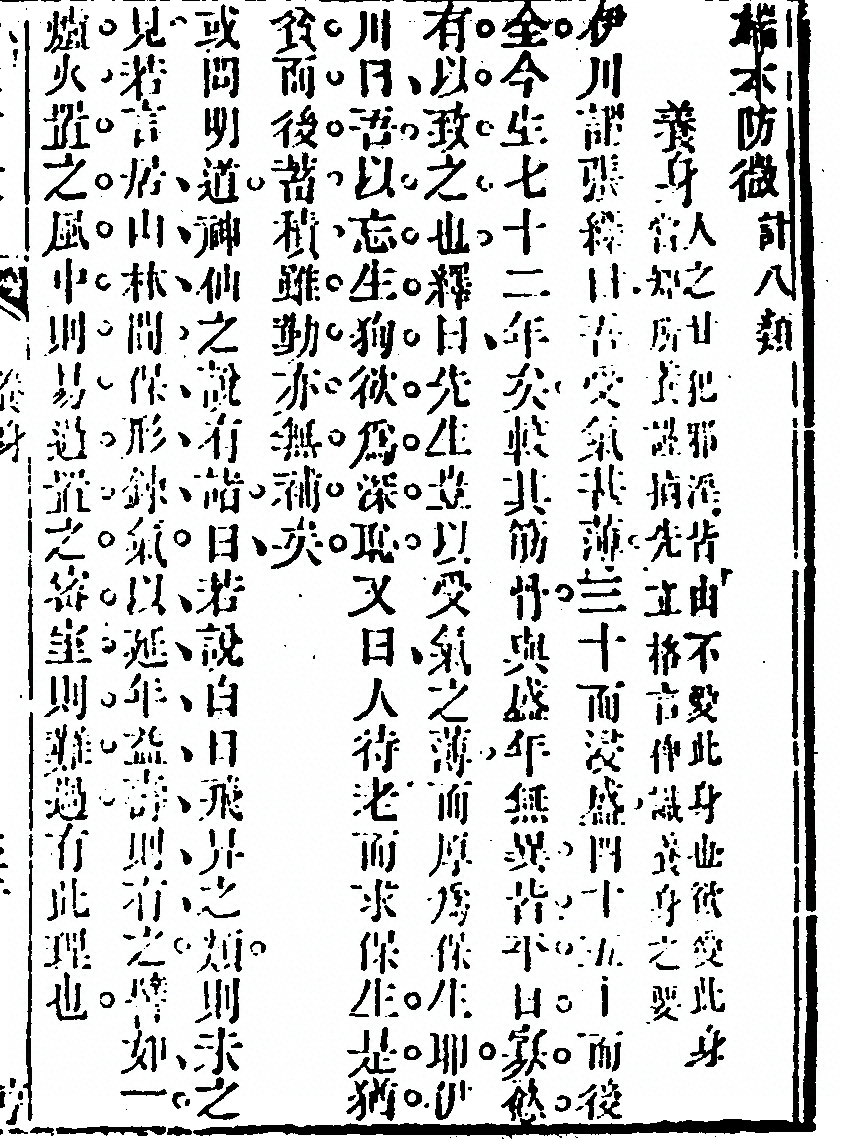 端本防微計八類
養身人之甘犯邪淫皆由不愛此身也欲愛此身
當知所養謹摘先立格言俾識養身之要
伊川謂張繹曰吾受氣甚薄三十而浸盛四十五十而後
全今生七十二年矣較其筋骨與盛年無異皆平日寡慾
有以致之也繹曰先生豈以受氣之薄而厚為保生耶伊
川曰吾以忘生狥欲為深恥又曰人待老而求保生是猶
貧而後蓄積雖勤亦無補矣
或問明道神仙之說有諸曰若說白日飛昇之類則未之
見若言居山林間保形鍊氣以延年益壽則有之譬如一
爐火置之風中則易過置之密室則難過有此理也
養身